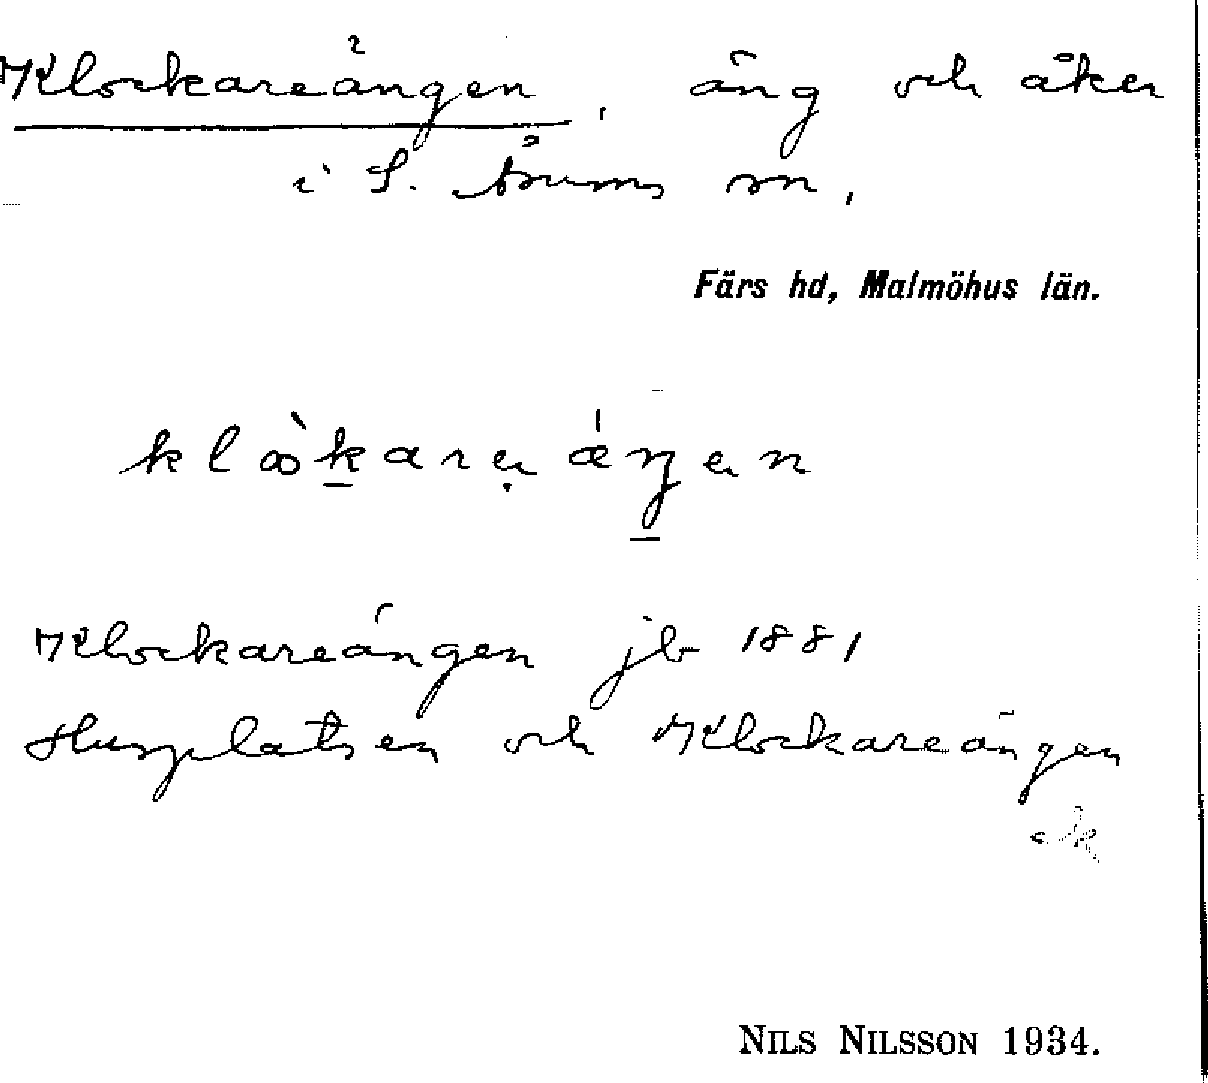 Klockareängen, äng och åker
i S. Åsums sn.
Färs hd, Malmöhus län.
Klockareängen jb 1881
Husplatsen och Klockareängen
NILS NILSSON 1934.